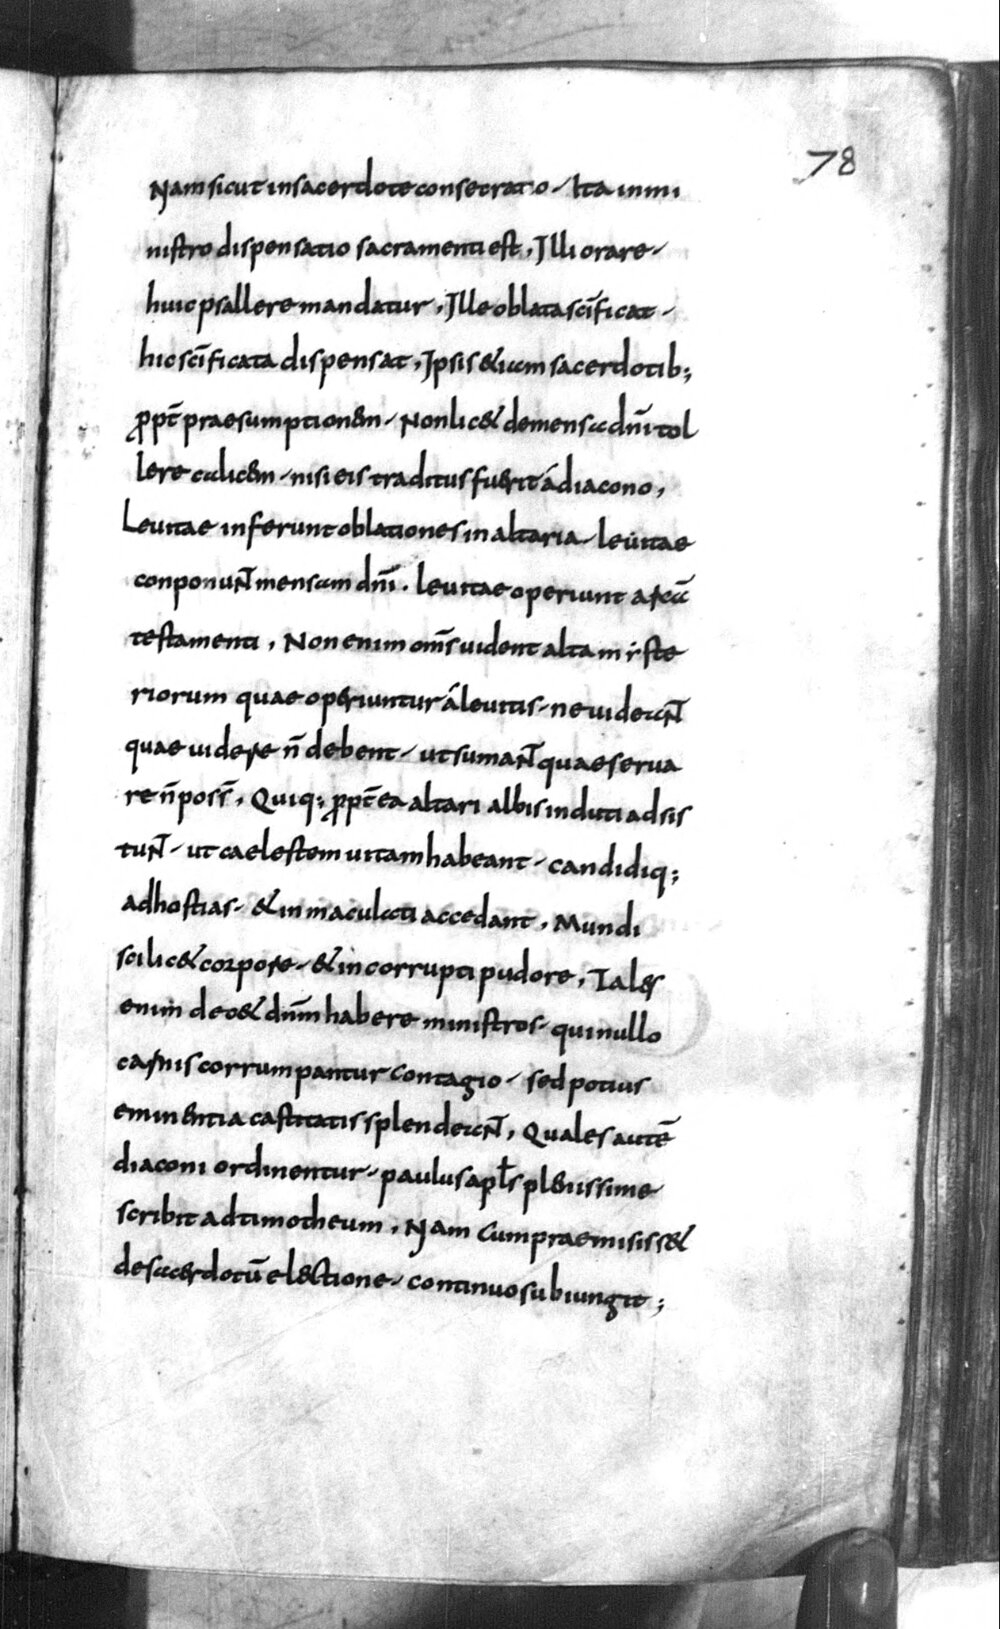 78
Nam sicut insacerdote consecratio. Ita inmi
nistro dispensatio sacramenti est. Illi orare.
huic psallere mandatur. Ille oblata sc̄ificat.
hic sc̄ificata dispensat. Ipsis & iam sacerdotib;
ꝓpt̄ praesumptionem. Non lic& demensa dn̄i tol
lere calicem. nisi eis traditus fuerit á diacono,
Leuitae inferunt oblationes in altaria. leuitae
conponuNt̄ mensam dn̄i. leuitae operiunt arcā
testamenti, Non enim om̄s uident alta mẏste
riorum quae operiuntur á leuitis. ne uideaNt̄
quae uidere n̄ debent. ut sumaNt̄ quae serua
re n̄ poss̄. Quiq; ꝓpt̄ ea altari albis induti adsis
tuNt̄. ut caelestem uitam habeant. candidiq;
ad hostias. & inmaculati accedant. Mundi
scilic& corpore. & incorrupti pudore, Tales
enim dec& dn̄m habere ministros. qui nullo
carnis corrumpantur contagio. sed potius
eminentia castitatis splendeaNt̄, Quales autē
diaconi ordinentur. paulus apłs plenissime
scribit ad timotheum. Nam cum praemisiss&
de sacerdotū electione. continuo subiungit;